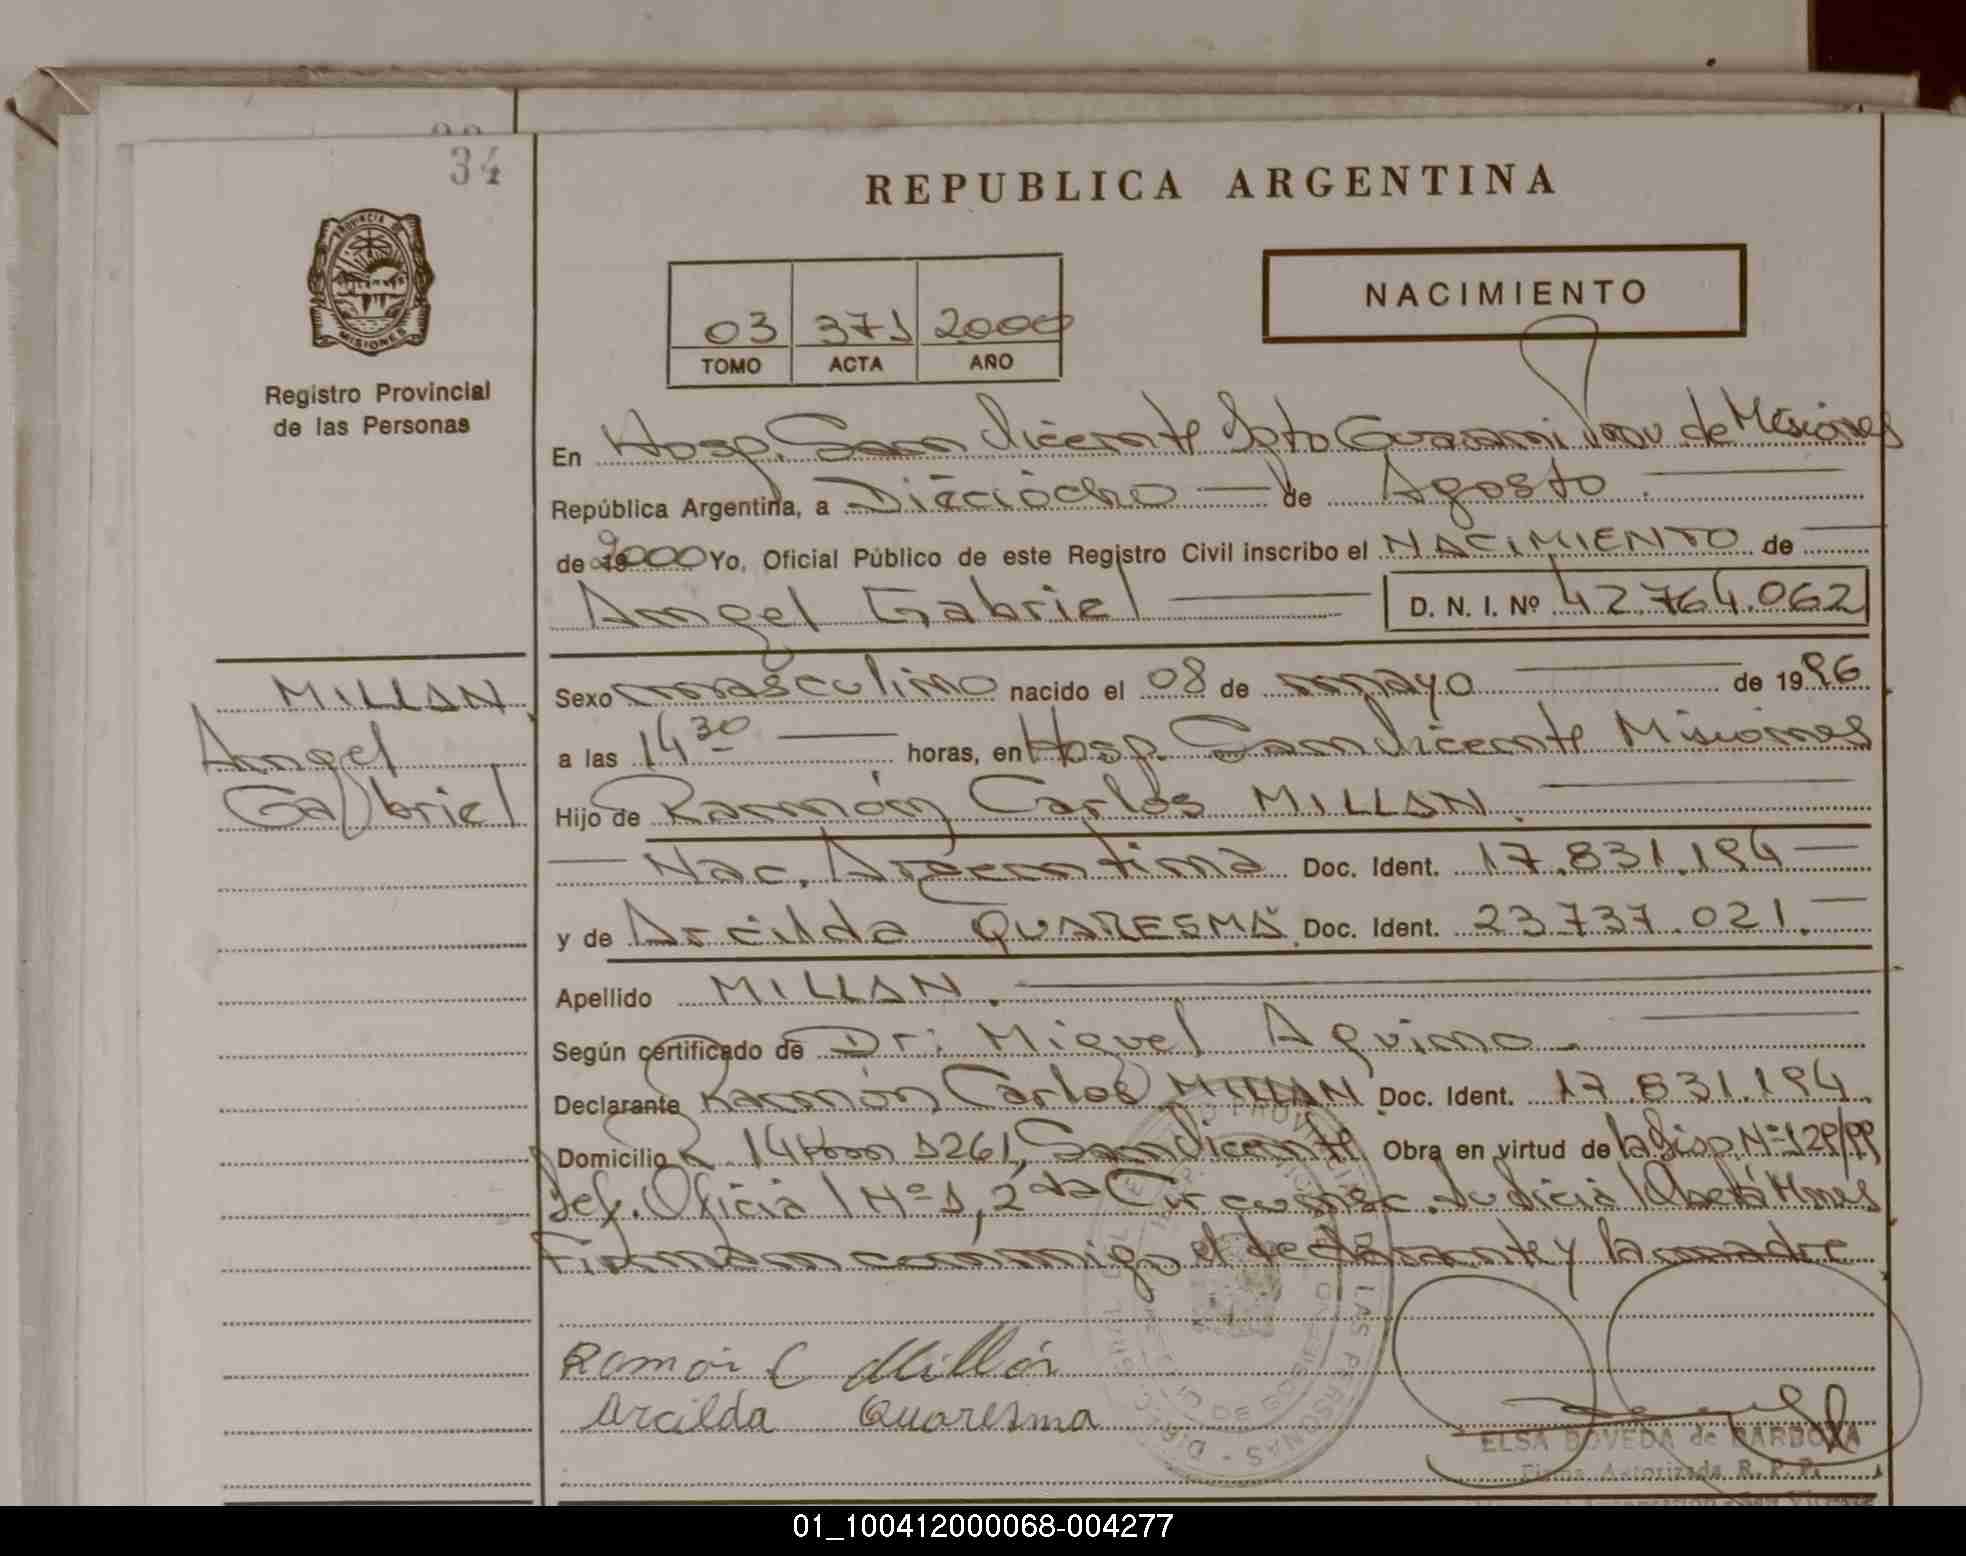 34
REPUBLICA ARGENTINA
PROVINCIA DE
MISIONES
Registro Provincial
de las Personas
NACIMIENTO
03 371 2000
TOMO ACTA AÑO
En Hosp. San Vicente Dpto Guarani Prov de Misiones
República Argentina, a Dieciocho de Agosto
de 2000 Yo, Oficial Público de este Registro Civil inscribo el NACIMIENTO de
Angel Gabriel D. N. I. Nº 42.764.062
MILLAN
Angel
Gabriel
Sexo masculino nacido el 08 de mayo de 1996
a las 14 30 horas, en Hosp. San Vicente Misiones
Hijo de Ramón Carlos MILLAN
Nac. Argentina Doc. Ident. 17.831.194
y de Arcilda QUARESMA Doc. Ident. 23.737.021.
Apellido MILLAN.
Según certificado de Dr: Miguel Aquino
Declarante Ramón Carlos MILLAN Doc. Ident. 17.831.194
Domicilio R 14 Km 1261, San Vicente Obra en virtud de la Disp. Nº 129/99
Def. Oficial Nº 1, 2da Circunsc. Judicial Oberá Mnes
Firman conmigo el declarante y la madre
Ramón C Millán
Arcilda Quaresma
ELSA BOVEDA de BARBOZA
Firma Autorizada R. P. P.
01_100412000068-004277